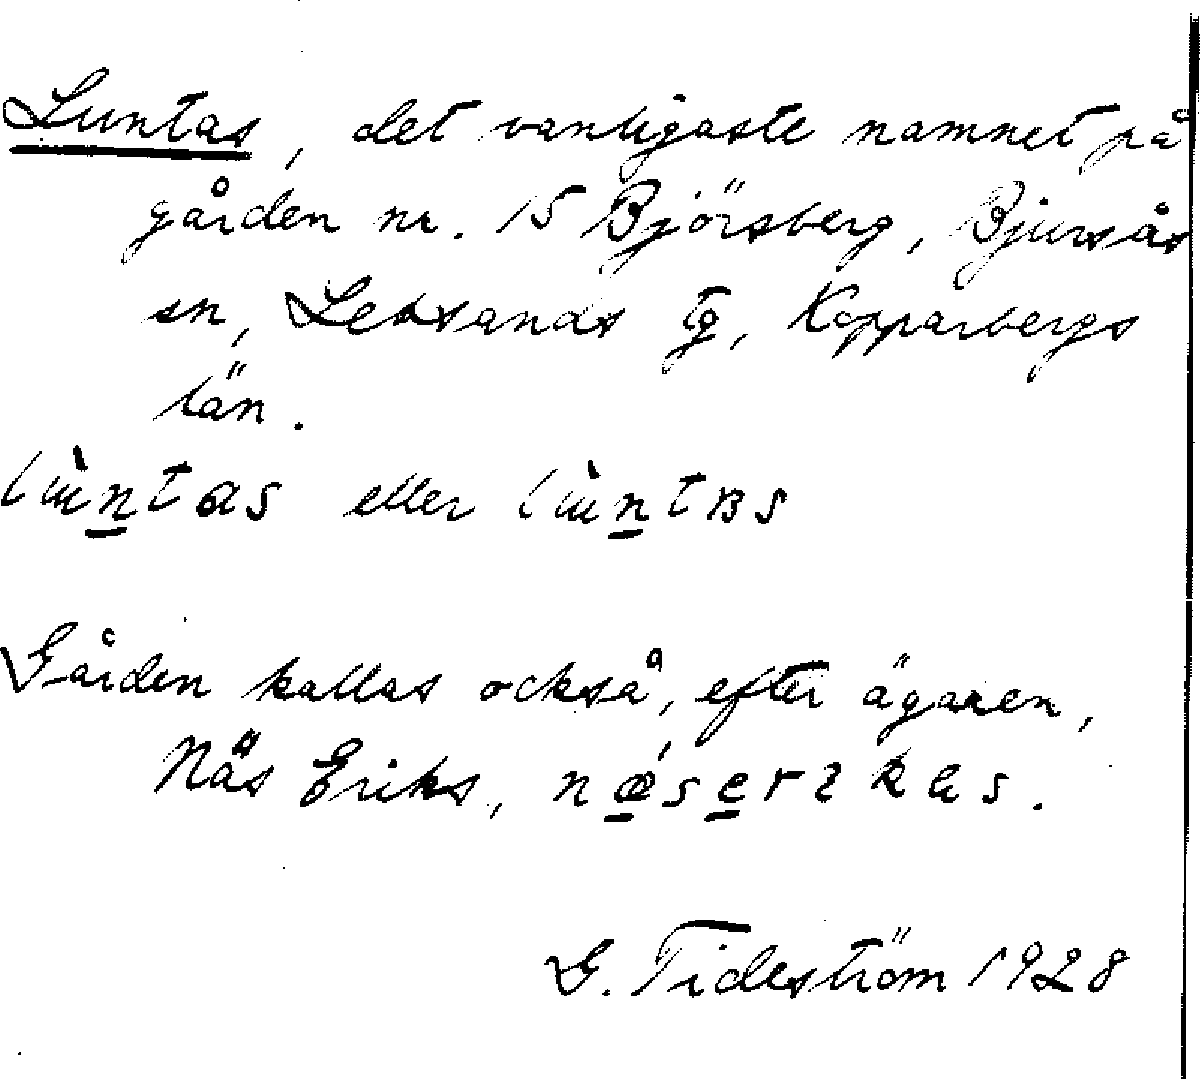 Luntas, det vanligaste namnet på
gården nr. 15 Björsberg, Bjursås
sn, Leksands tg, Kopparbergs
län.
eller
Gården kallas också, efter ägaren,
Näs Eriks,
G. Tideström 1928